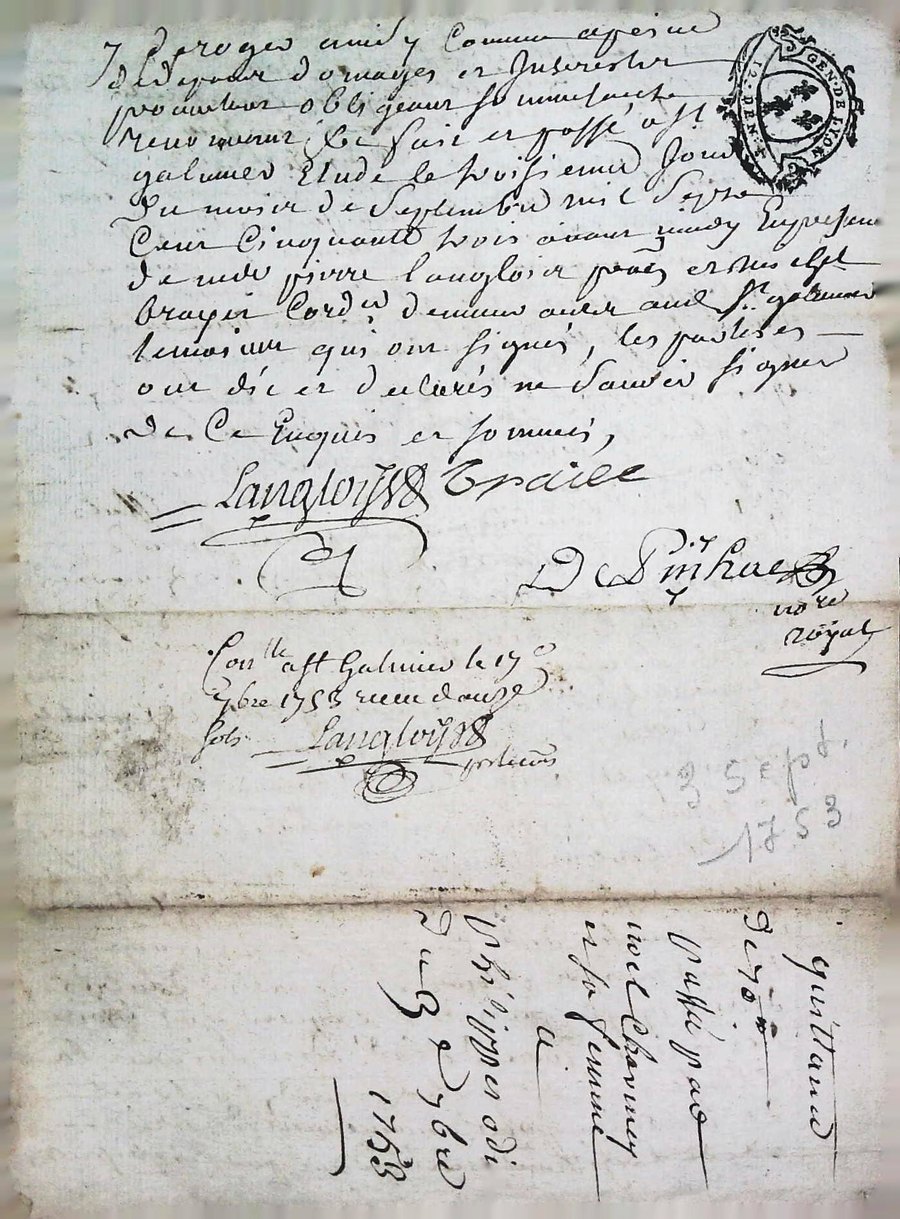 deroger ainsy Comme a peine
de depens domages et Interestz
promettent obligeant soumettant
renonceant &c fait et passé a St
galmier Etude le troisieme Jour
Du mois de Septembre mil Sept
Cent Cinquante trois avant midy En presence
de pierre langlois et
Cord.er demeurants aud. St galmier
temoins qui ont signés, les parties
ont dit et declarés ne Sauoir signer
De Ce Enquis et sommés,
Langloys
notre
royal
Con.lle a St Galmier le 17e
7bre 1753 receu douze
sols Langloys
3 Sept.
1753
GEN. DE LYON
quittance
de
passé par
noel
et sa femme
a
philippes odi
Du 3e 7bre
1753